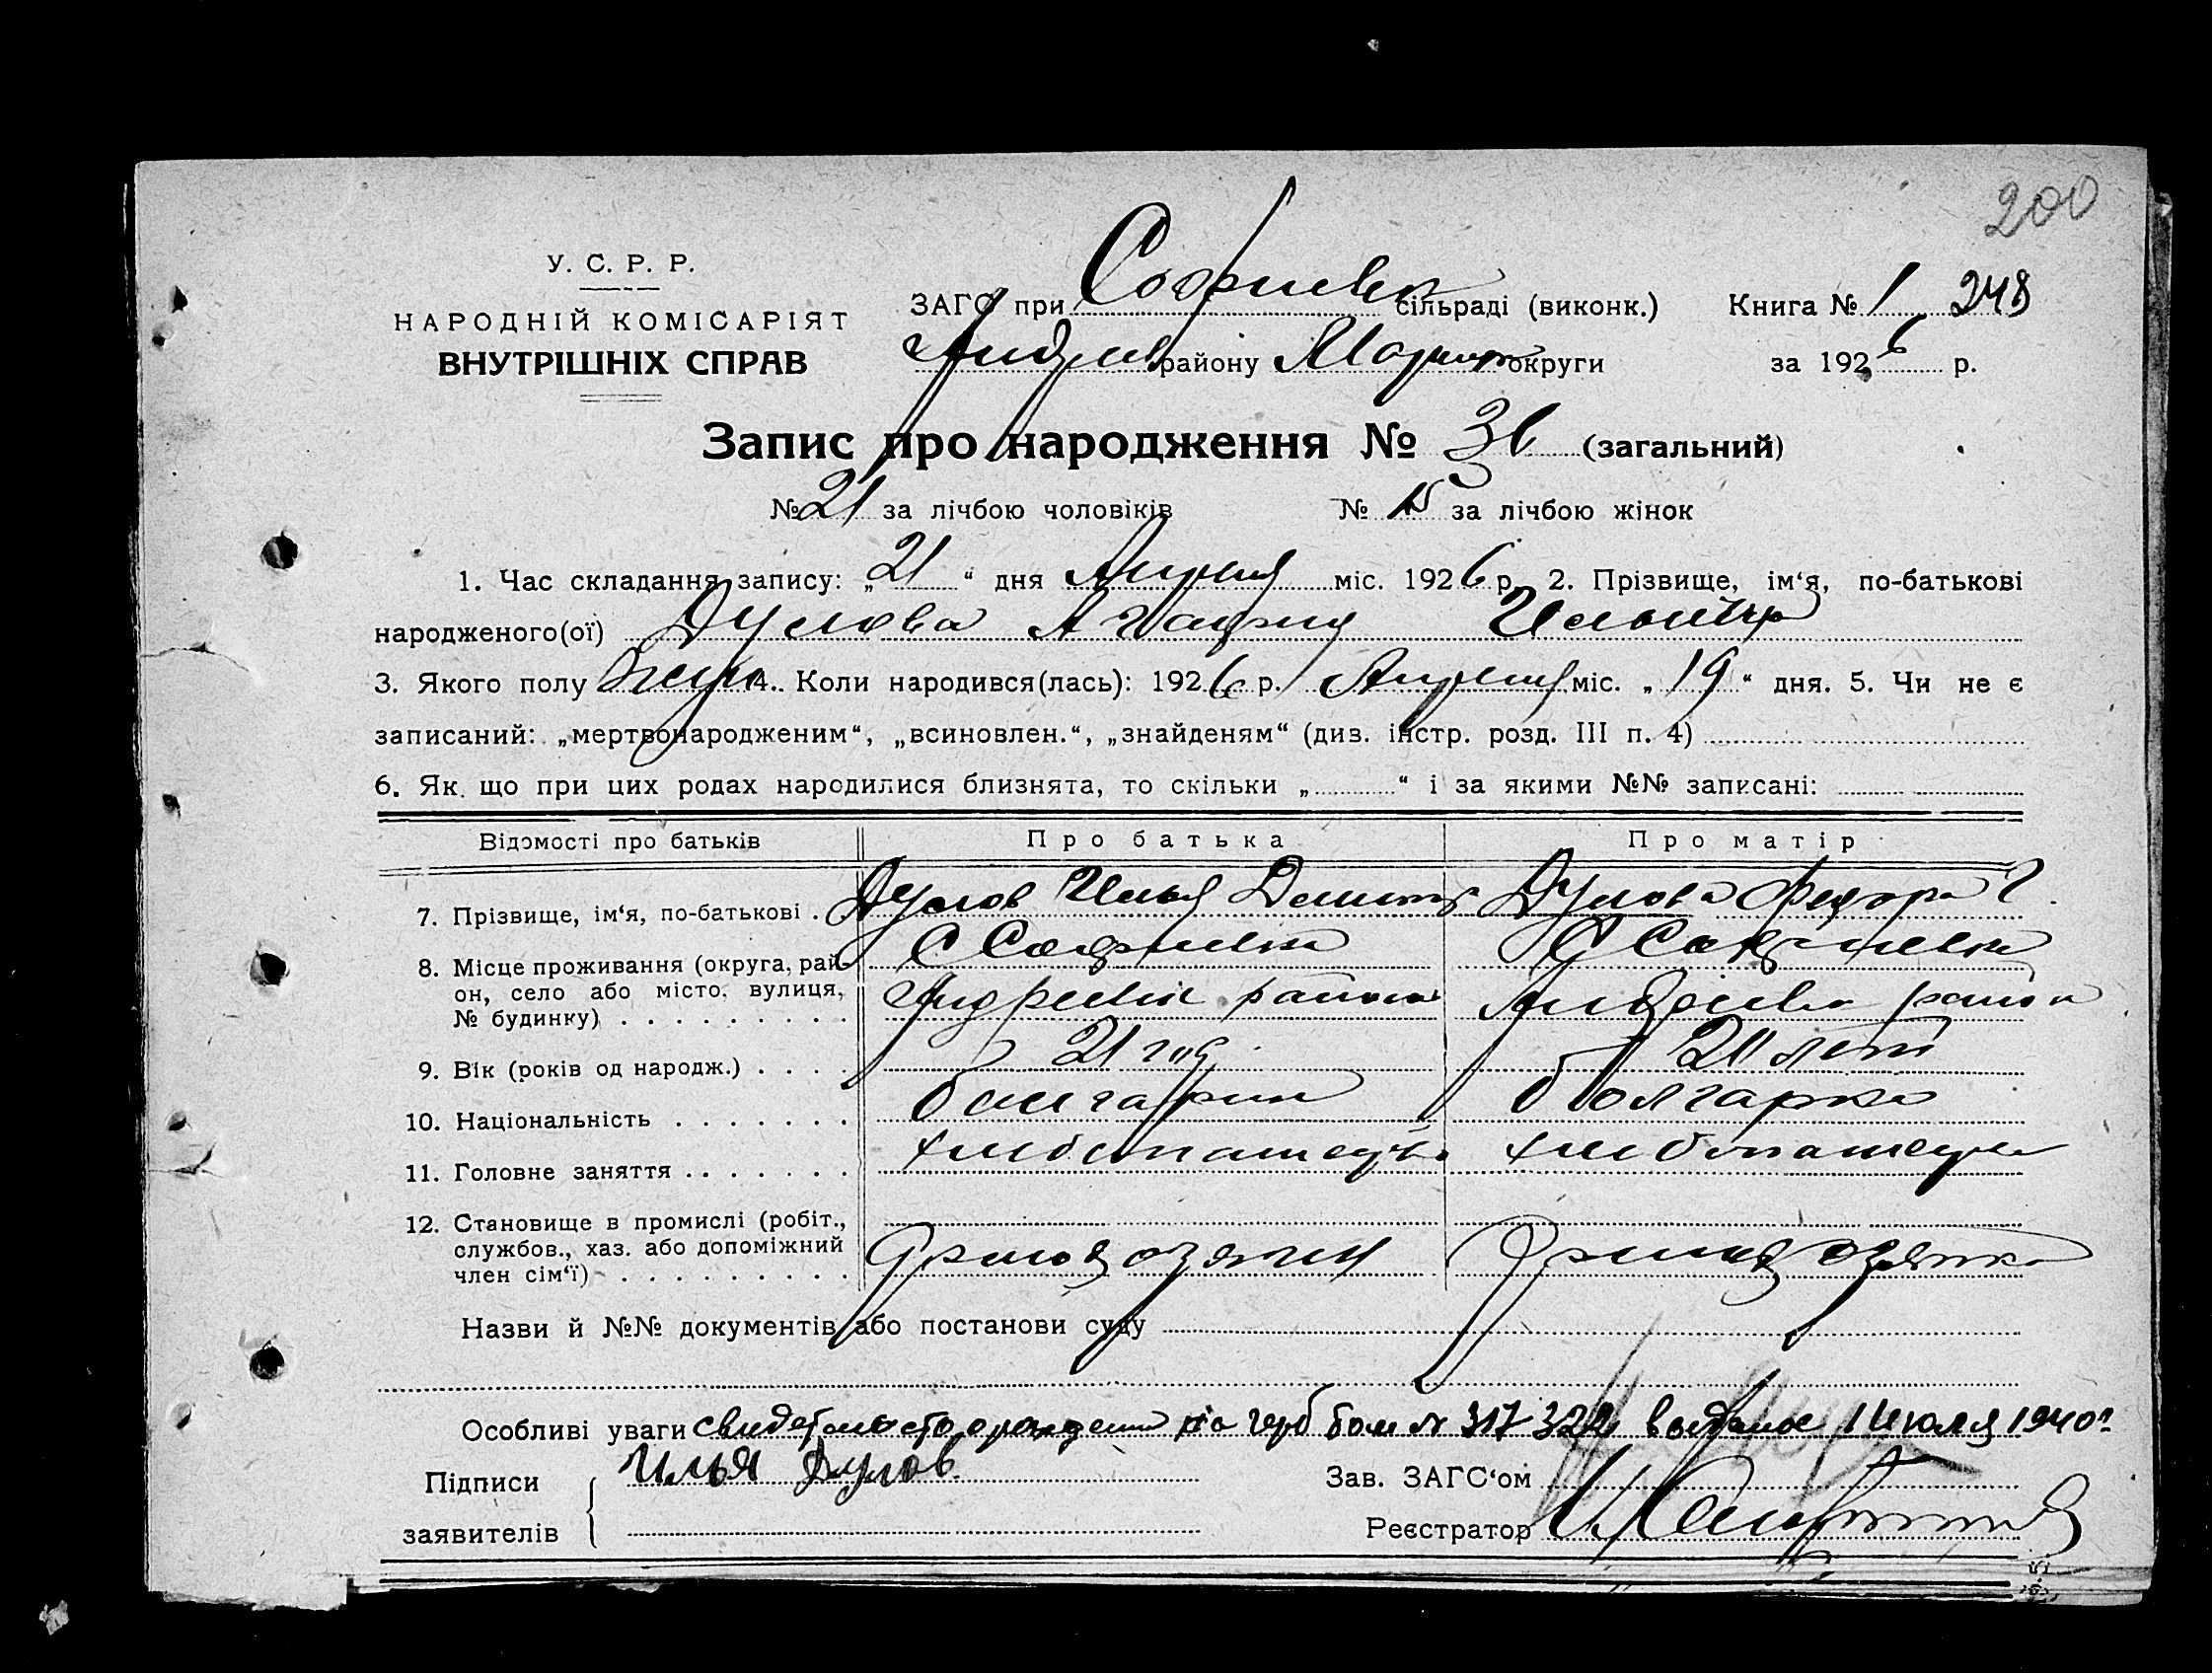 200
У. С. Р. Р.
НАРОДНІЙ КОМІСАРІЯТ
ВНУТРІШНІХ СПРАВ
ЗАГС при Софиевк сільраді (виконк.) Книга № 1 248
району Мариуп округи за 1926 р.
Запис про народження № 36 (загальний)
№ 21 за лічбою чоловіків № 15 за лічбою жінок
1. Час складання запису: „21“ дня Апреля міс. 1926 р. 2. Прізвище, ім‘я, по-батькові
народженого(ої) Дулова Агафия
3. Якого полу 4. Коли народився(лась): 1926 р. Апреля міс. „19“ дня. 5. Чи не є
записаний: „мертвонародженим“, „всиновлен.“, „знайденям“ (див. інстр. розд. III п. 4)
6. Як що при цих родах народилися близнята, то скільки „ “ і за якими №№ записані:
Відомості про батьків Про батька Про матір
7. Прізвище, ім‘я, по-батькові . Дулов Илья Дмит Дулова Федора Г
8. Місце проживання (округа, рай- С Софиевка С Софиевка
он, село або місто, вулиця, района района
№ будинку)
9. Вік (років од народж.) 21 год 20 лет
10. Національність болгарин болгарка
11. Головне заняття хлебопашец
12. Становище в промислі (робіт.,
службов., хаз. або допоміжний
член сім‘ї)
Назви й №№ документів або постанови суду
Особливі уваги свидетельство о рождении за герб бом № 317322 выдано 1 Июля 1940 г
Підписи Илья Дулов Зав. ЗАГС‘ом
заявителів Реєстратор